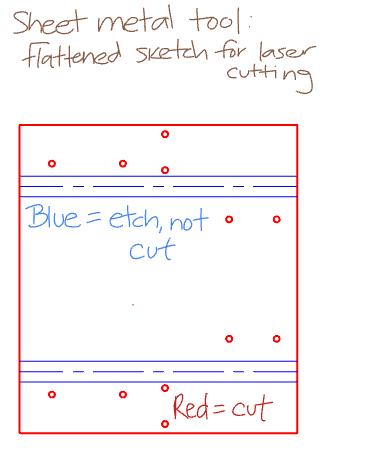 Sheet metal tool:
flattened sketch for laser
cutting
Blue = etch, not
cut
Red = cut